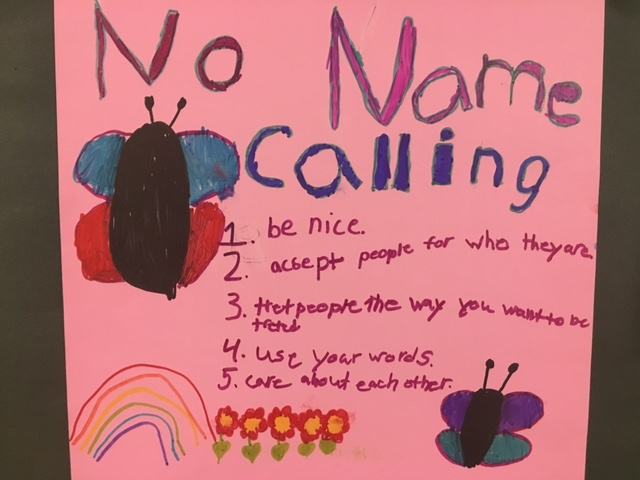 No Name
Calling
1. be nice.
2. accept people for who they are.
3. tret people the way you want to be
treted
4. use your words.
5. care about each other.